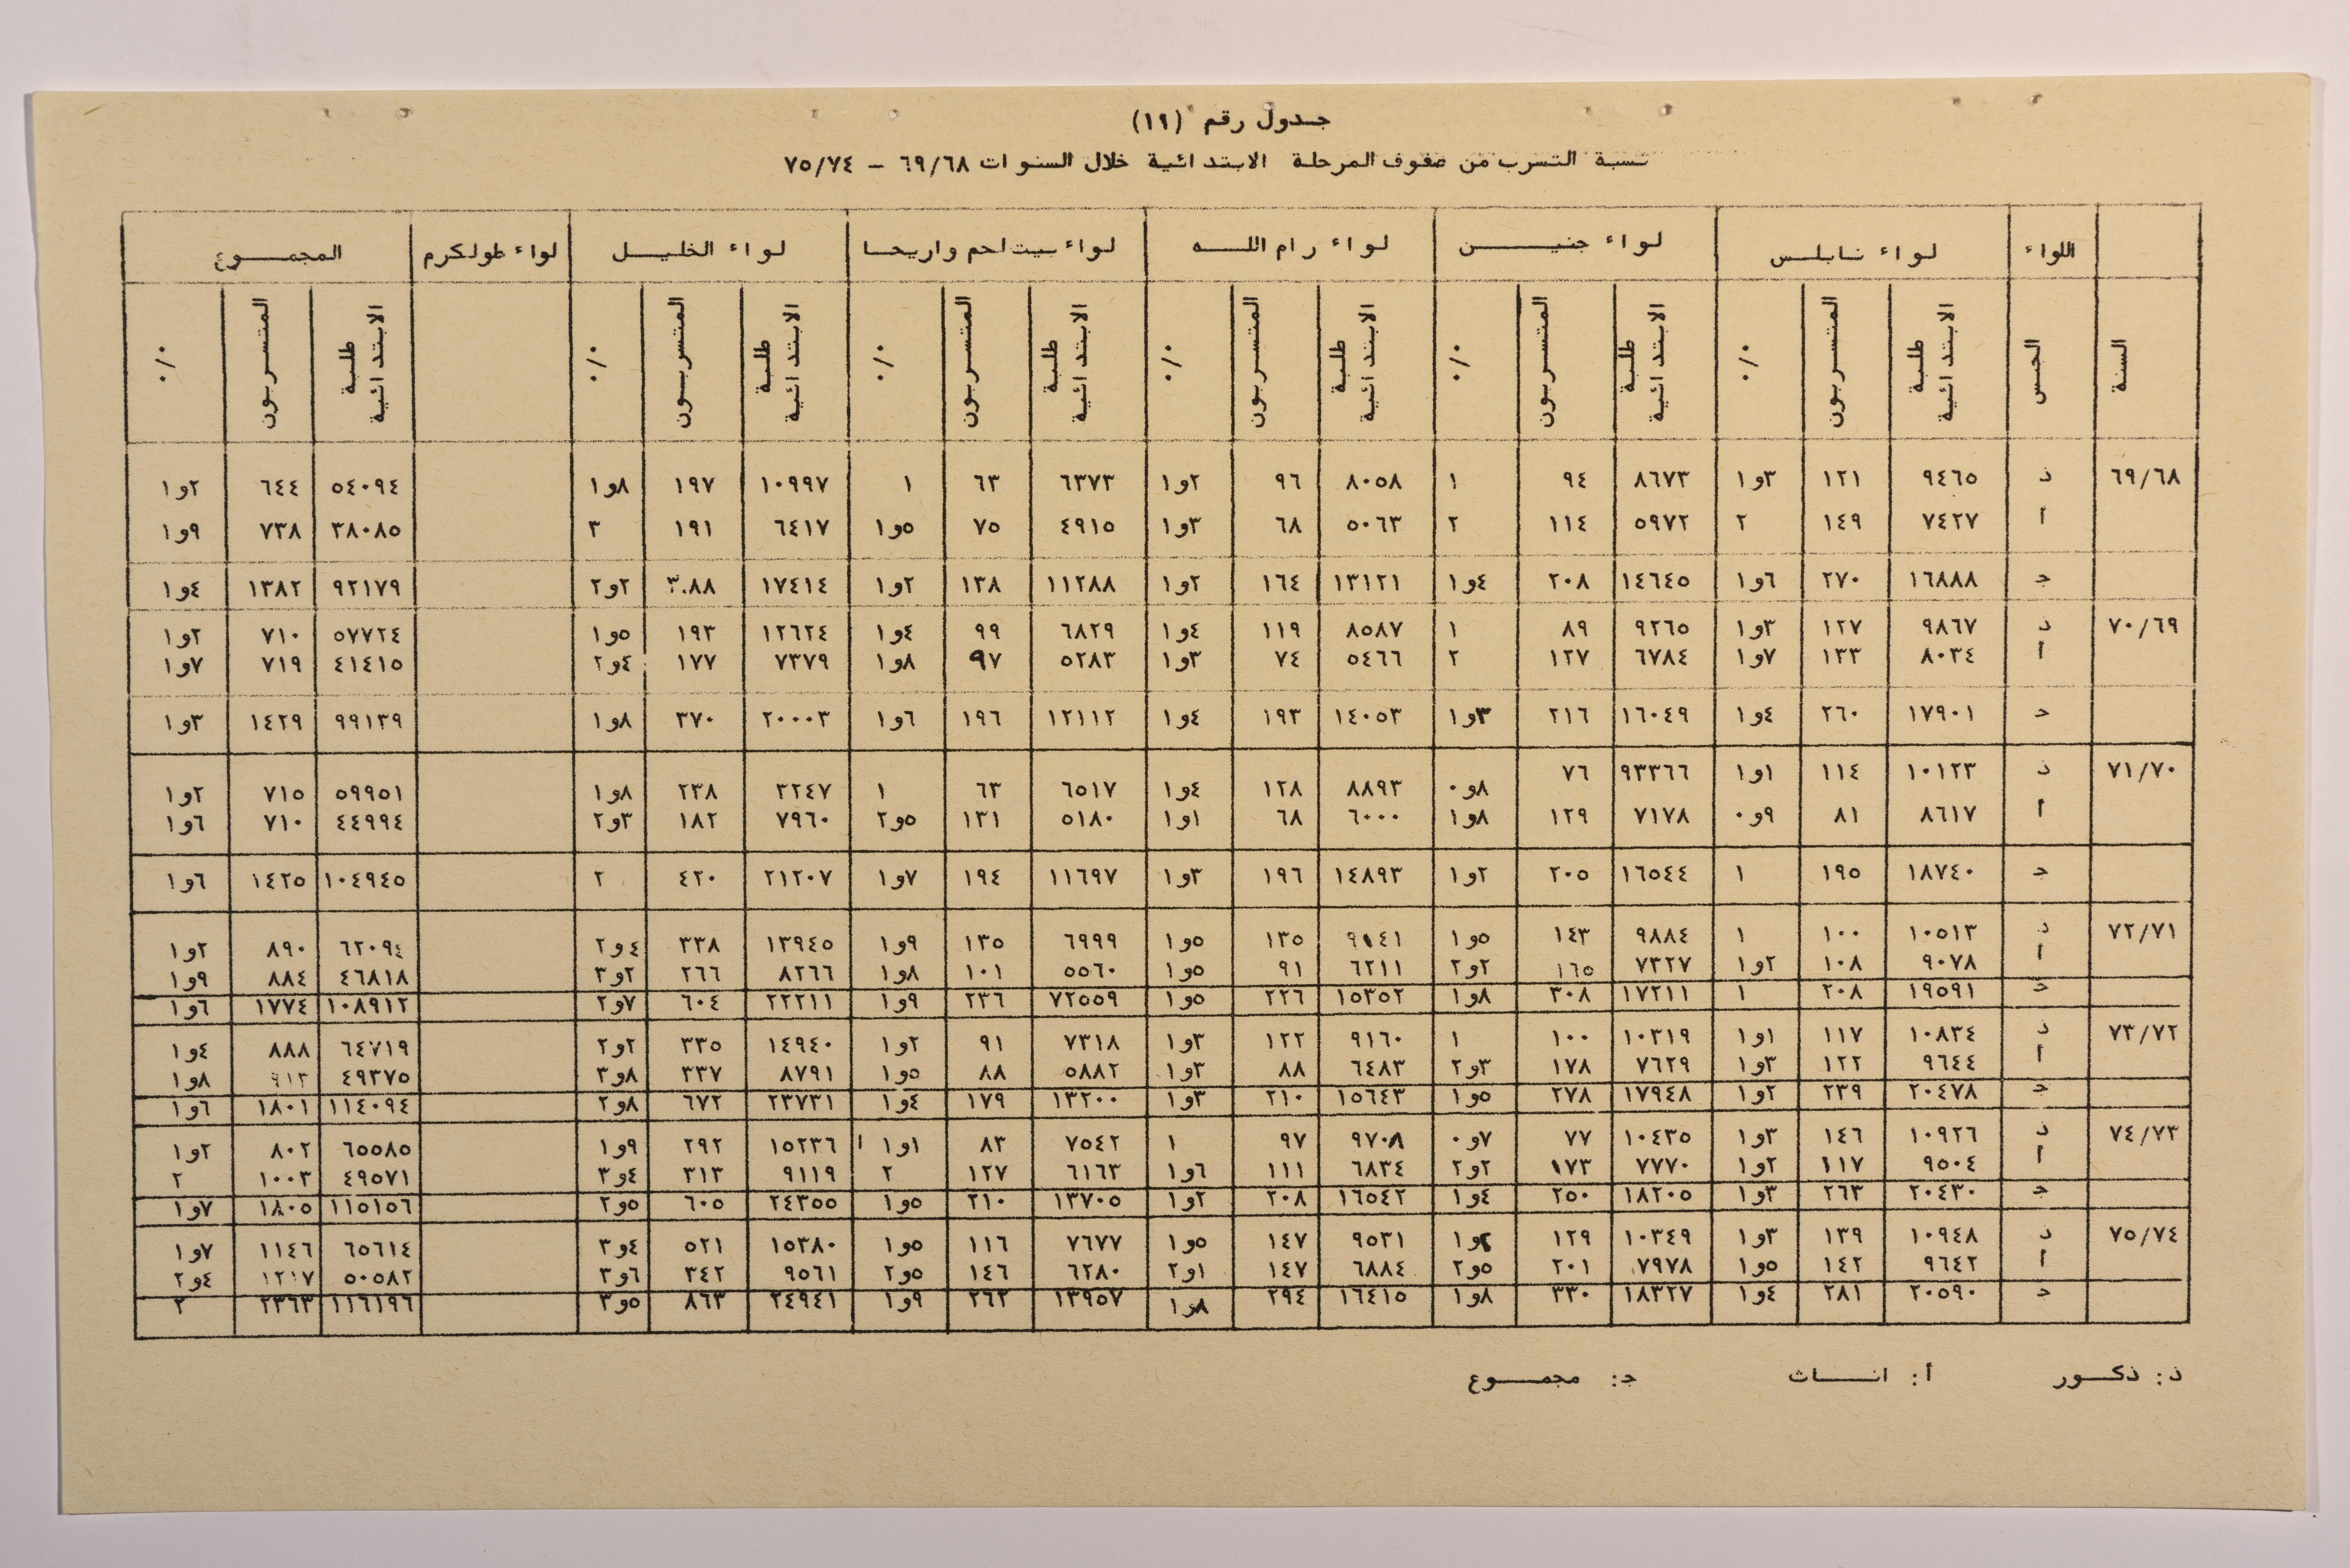 جدول رقم (١١)
نسبة التسرب من صفوف المرحلة الابتدائية خلال السنوات ٦٩/٦٨ – ٧٥/٧٤
اللواء لواء نابلس لواء جنين لواء رام الله لواء بيت لحم واريحا لواء الخليل لواء طولكرم المجموع
السنة الجنس طلبة الابتدائية المتسربون ٠/٠ طلبة الابتدائية المتسربون ٠/٠ طلبة الابتدائية المتسربون ٠/٠ طلبة الابتدائية المتسربون ٠/٠ طلبة الابتدائية المتسربون ٠/٠ طلبة الابتدائية المتسربون ٠/٠
٦٩/٦٨ ذ ٩٤٦٥ ١٢١ ٣و١ ٨٦٧٣ ٩٤ ١ ٨٠٥٨ ٩٦ ٢و١ ٦٣٧٣ ٦٣ ١ ١٠٩٩٧ ١٩٧ ٨و١ ٥٤٠٩٤ ٦٤٤ ٢و١
أ ٧٤٢٧ ١٤٩ ٢ ٥٩٧٢ ١١٤ ٢ ٥٠٦٣ ٦٨ ٣و١ ٤٩١٥ ٧٥ ٥و١ ٦٤١٧ ١٩١ ٣ ٣٨٠٨٥ ٧٣٨ ٩و١
ج ١٦٨٨٨ ٢٧٠ ٦و١ ١٤٦٤٥ ٢٠٨ ٤و١ ١٣١٢١ ١٦٤ ٢و١ ١١٢٨٨ ١٣٨ ٢و١ ١٧٤١٤ ٣٠٨٨ ٢و٢ ٩٢١٧٩ ١٣٨٢ ٤و١
٧٠/٦٩ ذ ٩٨٦٧ ١٢٧ ٣و١ ٩٢٦٥ ٨٩ ١ ٨٥٨٧ ١١٩ ٤و١ ٦٨٢٩ ٩٩ ٤و١ ١٢٦٢٤ ١٩٣ ٥و١ ٥٧٧٢٤ ٧١٠ ٢و١
أ ٨٠٣٤ ١٣٣ ٧و١ ٦٧٨٤ ١٢٧ ٢ ٥٤٦٦ ٧٤ ٣و١ ٥٢٨٣ ٩٧ ٨و١ ٧٣٧٩ ١٧٧ ٤و٢ ٤١٤١٥ ٧١٩ ٧و١
ج ١٧٩٠١ ٢٦٠ ٤و١ ١٦٠٤٩ ٢١٦ ٣و١ ١٤٠٥٣ ١٩٣ ٤و١ ١٢١١٢ ١٩٦ ٦و١ ٢٠٠٠٣ ٣٧٠ ٨و١ ٩٩١٣٩ ١٤٢٩ ٣و١
٧١/٧٠ ذ ١٠١٢٣ ١١٤ ١و١ ٩٣٣٦٦ ٧٦ ٨و٠ ٨٨٩٣ ١٢٨ ٤و١ ٦٥١٧ ٦٣ ١ ٣٢٤٧ ٢٣٨ ٨و١ ٥٩٩٥١ ٧١٥ ٢و١
أ ٨٦١٧ ٨١ ٩و٠ ٧١٧٨ ١٢٩ ٨و١ ٦٠٠٠ ٦٨ ١و١ ٥١٨٠ ١٣١ ٥و٢ ٧٩٦٠ ١٨٢ ٣و٢ ٤٤٩٩٤ ٧١٠ ٦و١
ج ١٨٧٤٠ ١٩٥ ١ ١٦٥٤٤ ٢٠٥ ٢و١ ١٤٨٩٣ ١٩٦ ٣و١ ١١٦٩٧ ١٩٤ ٧و١ ٢١٢٠٧ ٤٢٠ ٢ ١٠٤٩٤٥ ١٤٢٥ ٦و١
٧٢/٧١ ذ ١٠٥١٣ ١٠٠ ١ ٩٨٨٤ ١٤٣ ٥و١ ٩١٤١ ١٣٥ ٥و١ ٦٩٩٩ ١٣٥ ٩و١ ١٣٩٤٥ ٣٣٨ ٤و٢ ٦٢٠٩٤ ٨٩٠ ٢و١
أ ٩٠٧٨ ١٠٨ ٢و١ ٧٣٢٧ ١٦٥ ٢و٢ ٦٢١١ ٩١ ٥و١ ٥٥٦٠ ١٠١ ٨و١ ٨٢٦٦ ٢٦٦ ٢و٣ ٤٦٨١٨ ٨٨٤ ٩و١
ج ١٩٥٩١ ٢٠٨ ١ ١٧٢١١ ٣٠٨ ٨و١ ١٥٣٥٢ ٢٢٦ ٥و١ ٧٢٥٥٩ ٢٣٦ ٩و١ ٢٢٢١١ ٦٠٤ ٧و٢ ١٠٨٩١٢ ١٧٧٤ ٦و١
٧٣/٧٢ ذ ١٠٨٣٤ ١١٧ ١و١ ١٠٣١٩ ١٠٠ ١ ٩١٦٠ ١٢٢ ٣و١ ٧٣١٨ ٩١ ٢و١ ١٤٩٤٠ ٣٣٥ ٢و٢ ٦٤٧١٩ ٨٨٨ ٤و١
أ ٩٦٤٤ ١٢٢ ٣و١ ٧٦٢٩ ١٧٨ ٣و٢ ٦٤٨٣ ٨٨ ٣و١ ٥٨٨٢ ٨٨ ٥و١ ٨٧٩١ ٣٣٧ ٨و٣ ٤٩٣٧٥ ٩١٣ ٨و١
ج ٢٠٤٧٨ ٢٣٩ ٢و١ ١٧٩٤٨ ٢٧٨ ٥و١ ١٥٦٤٣ ٢١٠ ٣و١ ١٣٢٠٠ ١٧٩ ٤و١ ٢٣٧٣١ ٦٧٢ ٨و٢ ١١٤٠٩٤ ١٨٠١ ٦و١
٧٤/٧٣ ذ ١٠٩٢٦ ١٤٦ ٣و١ ١٠٤٣٥ ٧٧ ٧و٠ ٩٧٠٨ ٩٧ ١ ٧٥٤٢ ٨٣ ١و١ ١٥٢٣٦ ٢٩٢ ٩و١ ٦٥٥٨٥ ٨٠٢ ٢و١
أ ٩٥٠٤ ١١٧ ٢و١ ٧٧٧٠ ١٧٣ ٢و٢ ٦٨٣٤ ١١١ ٦و١ ٦١٦٣ ١٢٧ ٢ ٩١١٩ ٣١٣ ٤و٣ ٤٩٥٧١ ١٠٠٣ ٢
ج ٢٠٤٣٠ ٢٦٣ ٣و١ ١٨٢٠٥ ٢٥٠ ٤و١ ١٦٥٤٢ ٢٠٨ ٢و١ ١٣٧٠٥ ٢١٠ ٥و١ ٢٤٣٥٥ ٦٠٥ ٥و٢ ١١٥١٥٦ ١٨٠٥ ٧و١
٧٥/٧٤ ذ ١٠٩٤٨ ١٣٩ ٣و١ ١٠٣٤٩ ١٢٩ و١ ٩٥٣١ ١٤٧ ٥و١ ٧٦٧٧ ١١٦ ٥و١ ١٥٣٨٠ ٥٢١ ٤و٣ ٦٥٦١٤ ١١٤٦ ٧و١
أ ٩٦٤٢ ١٤٢ ٥و١ ٧٩٧٨ ٢٠١ ٥و٢ ٦٨٨٤ ١٤٧ ١و٢ ٦٢٨٠ ١٤٦ ٥و٢ ٩٥٦١ ٣٤٢ ٦و٣ ٥٠٥٨٢ ١٢١٧ ٤و٢
ج ٢٠٥٩٠ ٢٨١ ٤و١ ١٨٣٢٧ ٣٣٠ ٨و١ ١٦٤١٥ ٢٩٤ ٨و١ ١٣٩٥٧ ٢٦٢ ٩و١ ٢٤٩٤١ ٨٦٣ ٥و٣ ١١٦١٩٦ ٢٣٦٣ ٢
ذ: ذكور أ: اناث ج: مجموع